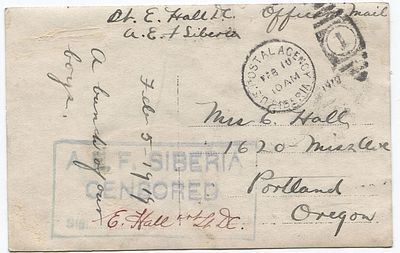 Lt. E. Hall DC.
Officers Mail
A.E.F Siberia
U.S. POSTAL AGENCY
FEB 10
10 AM
SIBERIA
1919
1
Mrs. E. Hall
1620
Portland
Oregon.
Feb 5-1919
A bunch of our
boys.
A. E. F. SIBERIA
CENSORED
Sig.
E. Hall 1st Lt. DC.